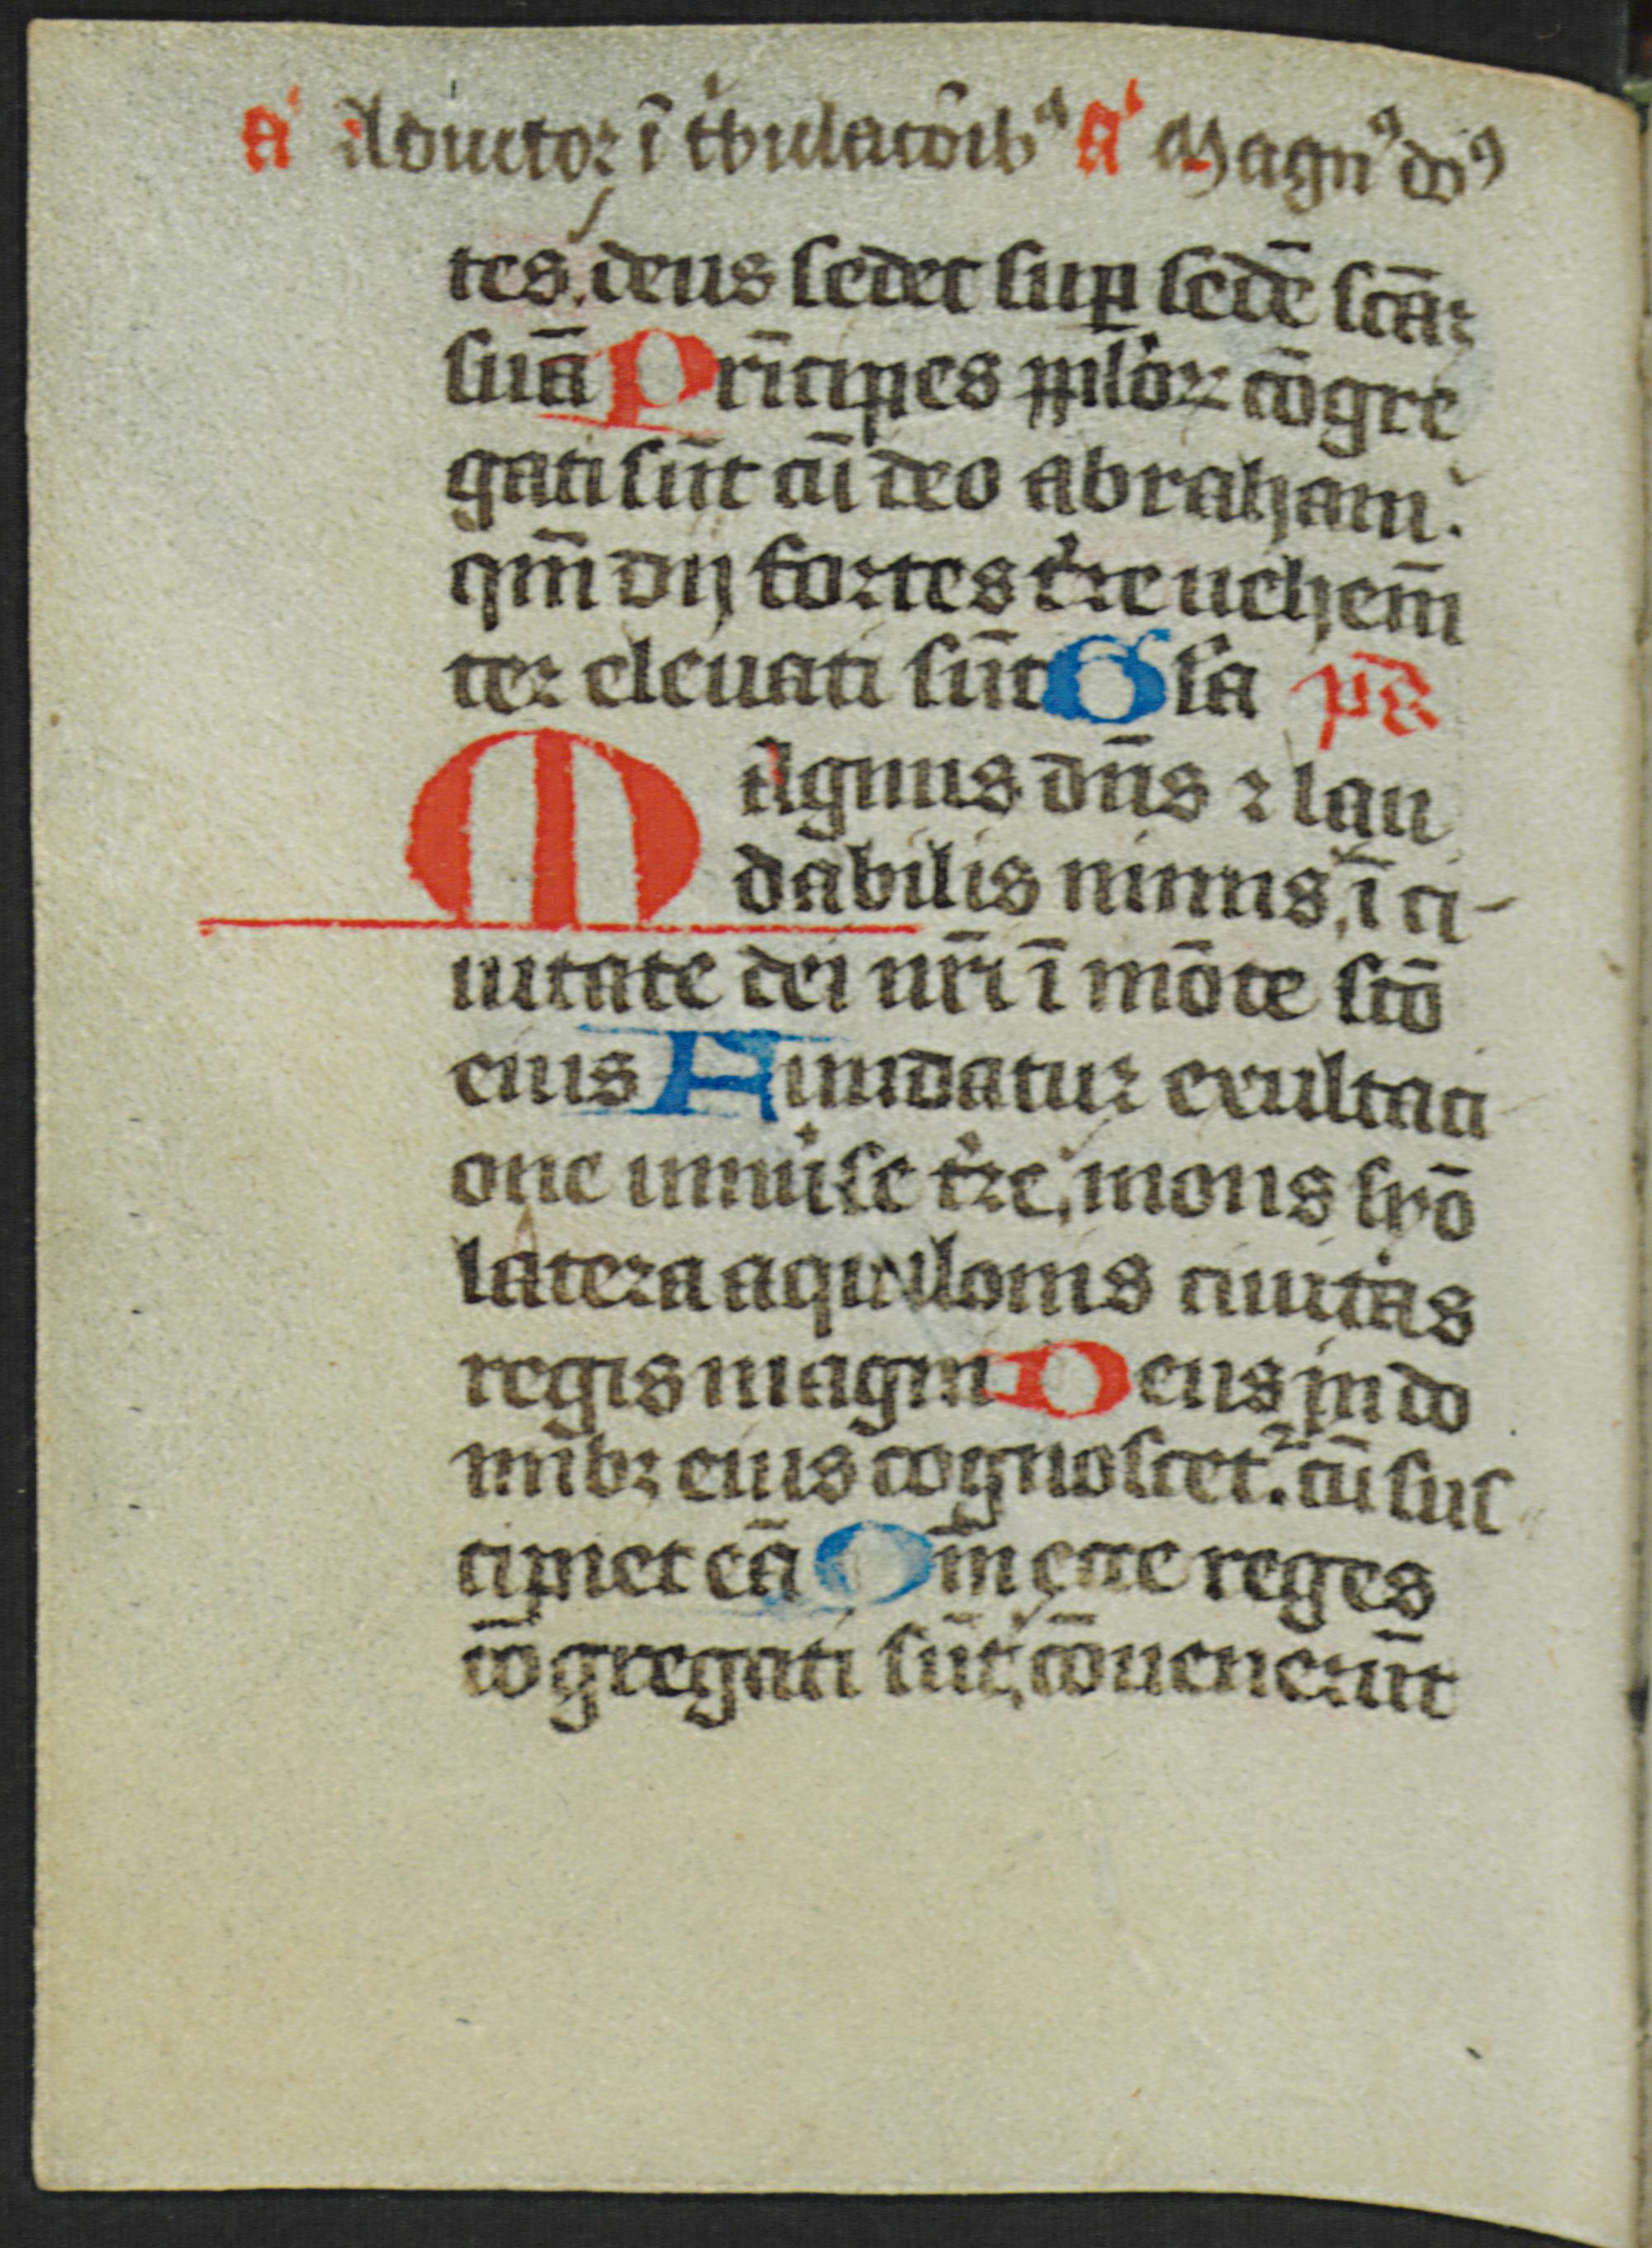 a͛ Adiutor ī tͥbulacōib9 a͛ Magn9 do9
tes. deus sedet sup̱ sedē scāꝫ
suā Prīcipes ppͥloꝝ cōgre
gati sūt cū deo abraham.
qm̄ dij fortes tr̄re uehem̄
ter eleuati sūt Gla p̄s
Magnus dn̄s ⁊ lau
dabilis nimis, ī ci-
uitate dei nr̄i ī mōte scō
eius Fuudatur exultaci
one uniu͛se tr̄re, mons syō
latera aquilonis ciuitas
regis magni Deus in do
mībꝫ eius cognoscetᷣ. cū sus
cipiet eā Qm̄ ecce reges
cōgregati sūt, cōuenerūt